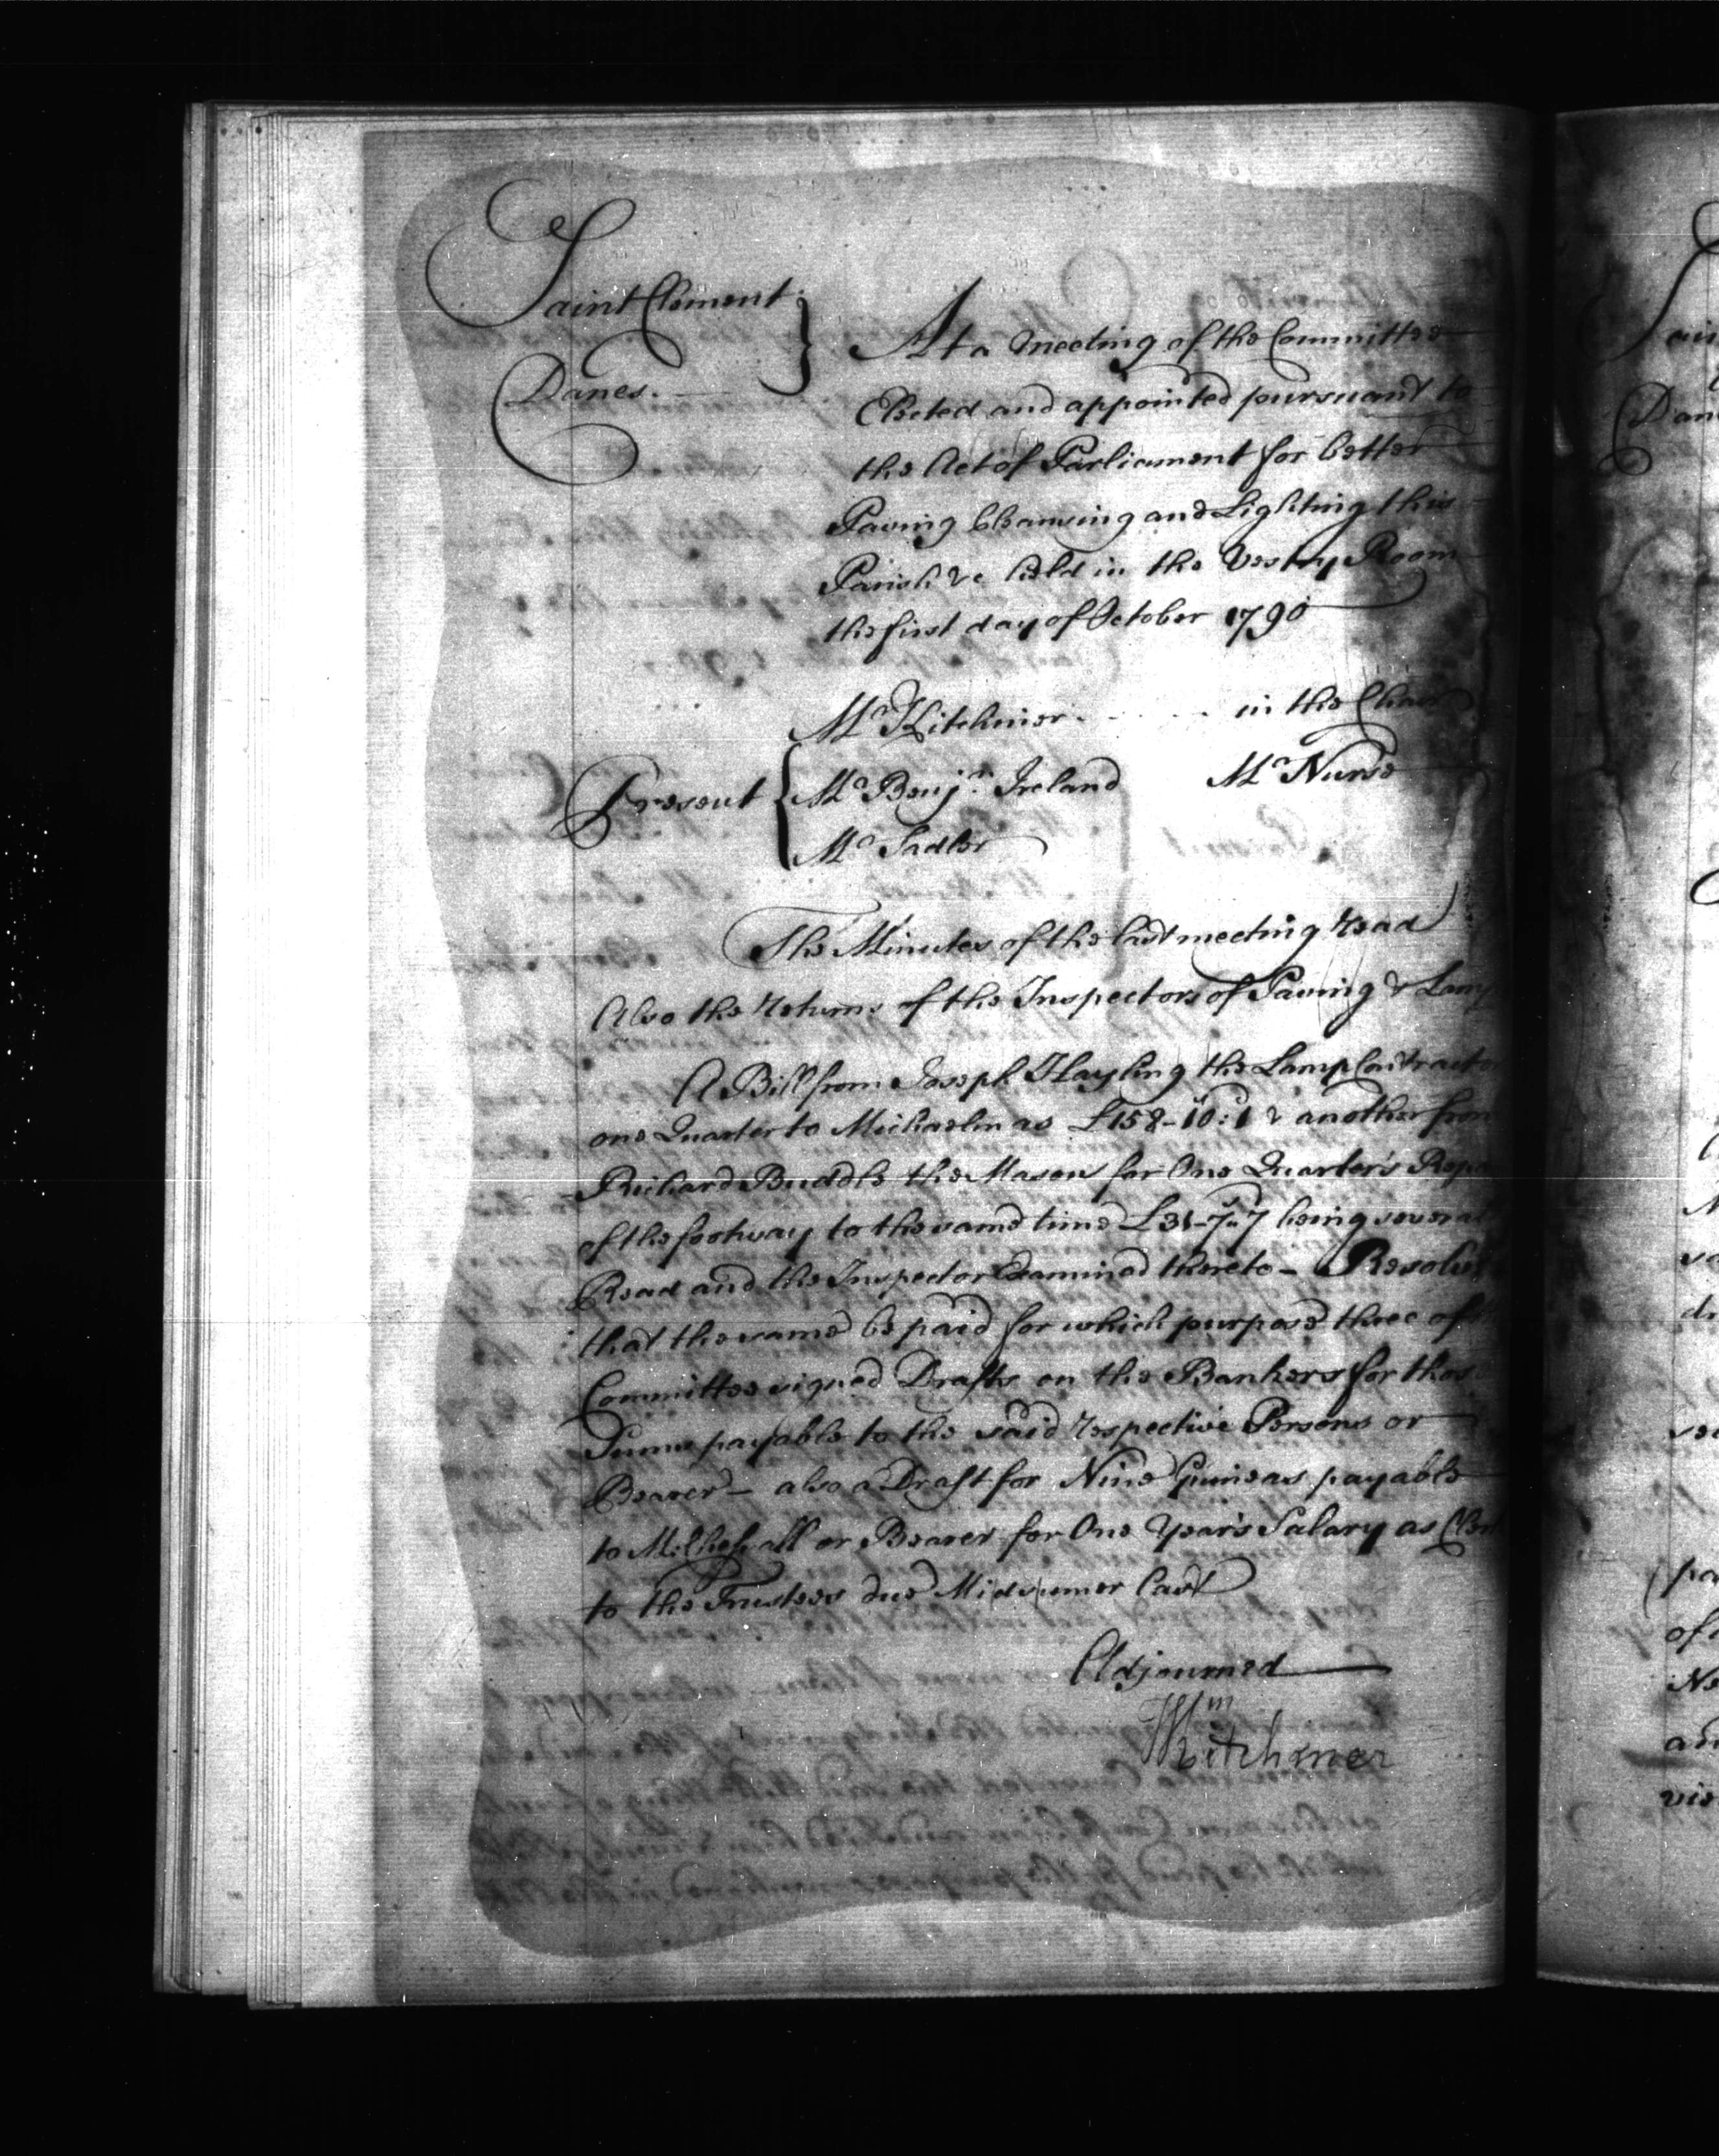 Saint Clement
Danes.
At a meeting of the Committee
Elected and appointed pursuant to
the Act of Parliament for better
Paving Cleansing and Lighting this
Parish &c held in the Vestry Room
the first day of October 1790
Mr Kitchiner in the Chair
Present Mr Benjn Ireland Mr Nurse
Mr Sadler
The Minutes of the last meeting read
Also the returns of the Inspectors of Paving &
A Bill from Joseph Hayling the Lamp Contractor
one Quarter to Michaelmas £158-10:1 & another from
Richard Buddle the Mason for One Quarter's
of the footway to the same time £31-7-7 being several
Read and the Inspector Examined thereto - Resolved
that the same be paid for which purpose three of
Committee signed Drafts on the Bankers for those
Sums payable to the said respective Persons or
Bearer - also a Draft for Nine Guineas payable
to or Bearer for One Year's Salary as Clerk
to the Trustees due Midsumer last
Adjourned
Wm
Kitchiner